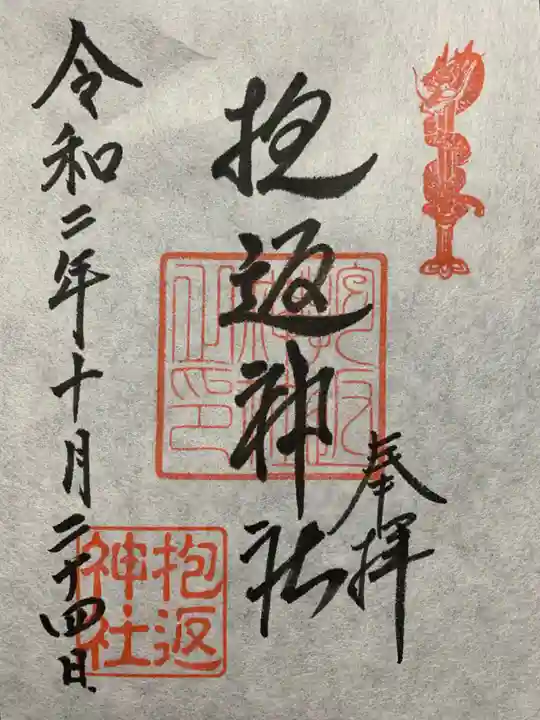 奉拝
抱返神社
抱返
神社
令和二年十月二十四日